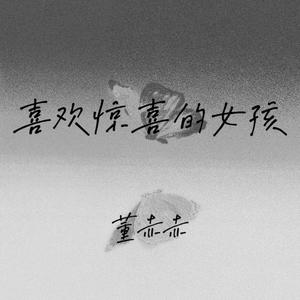 喜欢惊喜的女孩
董赤赤